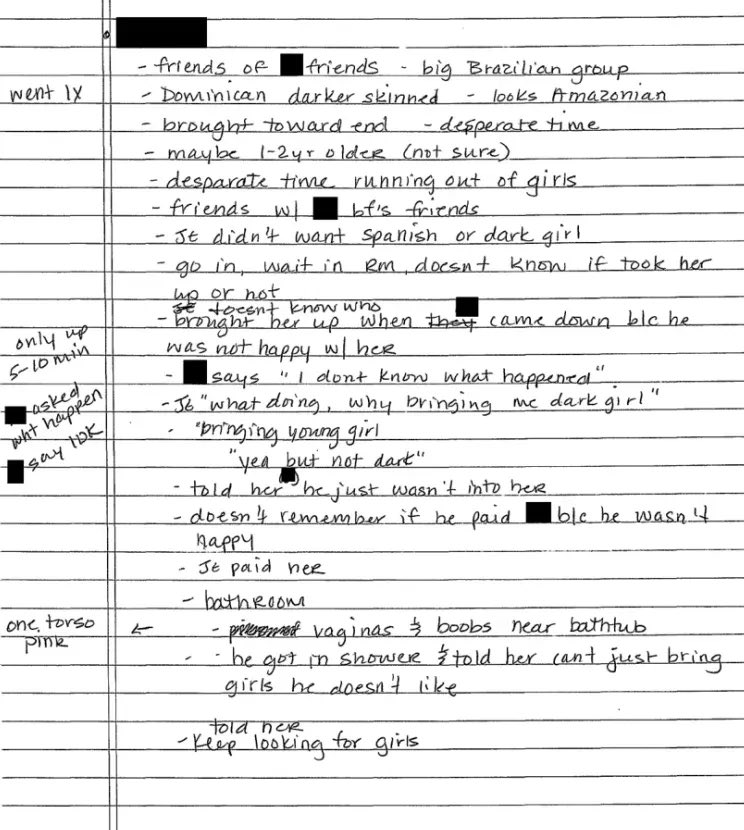 - friends of friends - big Brazilian group
went 1x
- Dominican darker skinned - looks Amazonian
- brought toward end - desperate time
- maybe 1-2yr older (not sure)
- desparate time running out of girls
- friends w/ bf's friends
- JE didn't want spanish or dark girl
- go in, wait in Rm, doesnt know if took her
up or not
doesnt know who
- brought her up when they came down b/c he
was not happy w/ her
only up
5-10 min
- says "I dont know what happened"
- JE "what doing, why bringing me dark girl"
asked
wht happen
say IDK
- "bringing young girl
"yea but not dark"
- told her he just wasn't into her
- doesn't remember if he paid b/c he wasn't
happy
- JE paid her
- bathroom
one, torso
pink
← - vaginas & boobs near bathtub
- - he got in shower & told her cant just bring
girls he doesn't like
told her
- Keep looking for girls